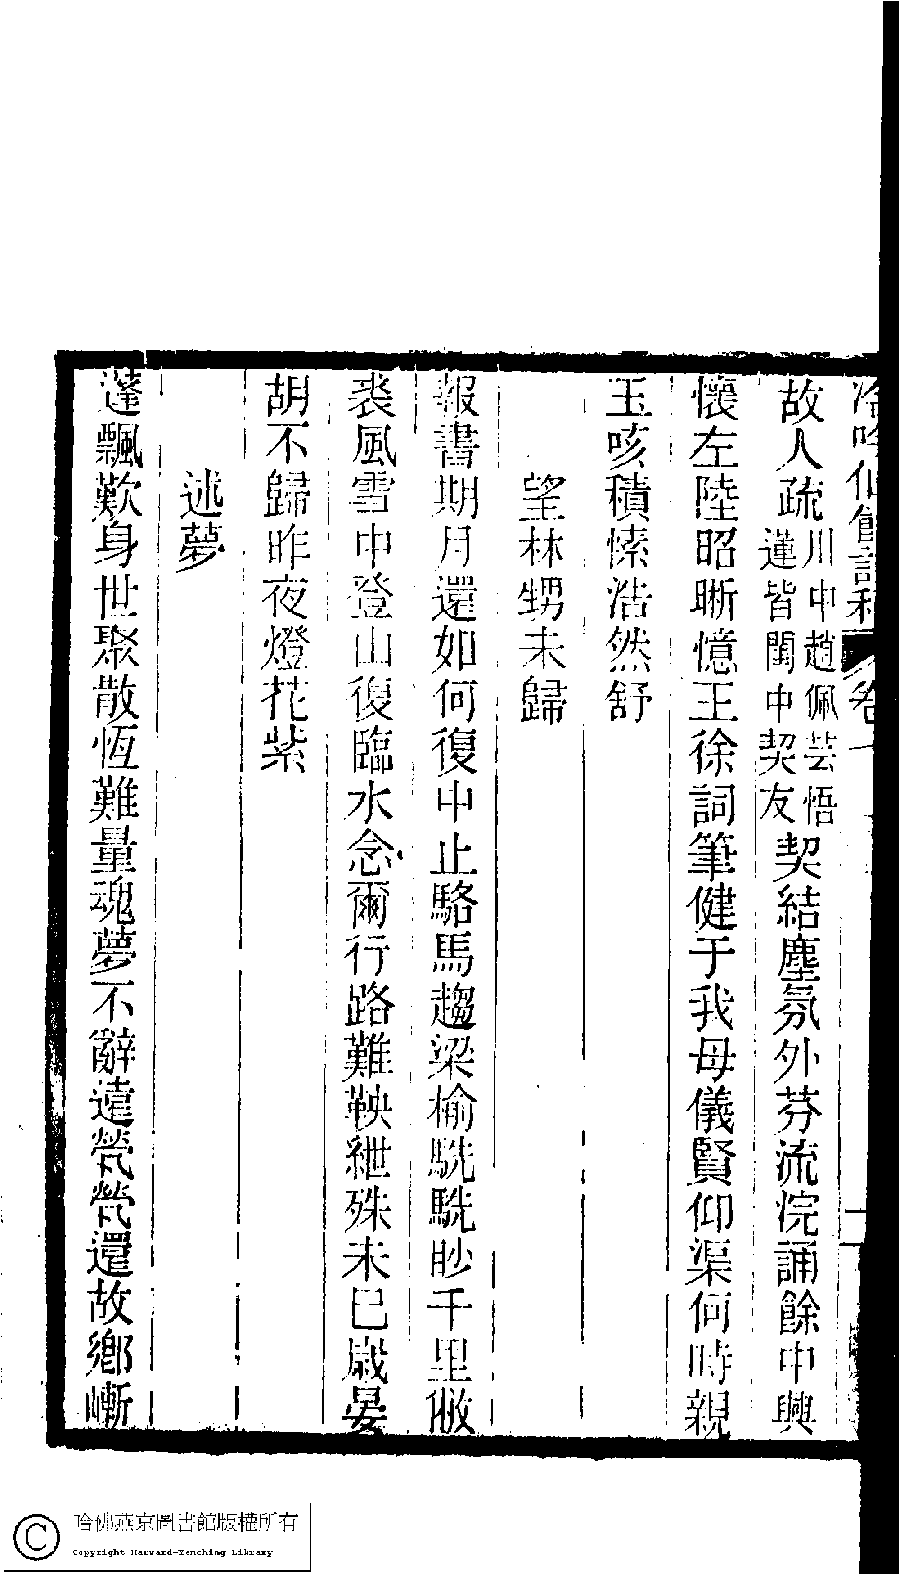 冷吟仙館詩稿 卷一
故人疏川中趙佩芸悟蓮皆閨中契友契結塵氛外芬流浣誦餘中興
懷左陸昭晰憶王徐詞筆健于我母儀賢仰渠何時親
玉咳積愫浩然舒
望林甥未歸
報書期月還如何復中止駱馬趨梁榆駪駪眇千里敝
裘風雪中登山復臨水念爾行路難鞅紲殊未已歲晏
胡不歸昨夜燈花紫
述夢
蓬飄歎身世聚散恆難量魂夢不辭遠煢煢還故鄉嶄
哈佛燕京圖書館版權所有
Copyright Harvard-Yenching Library